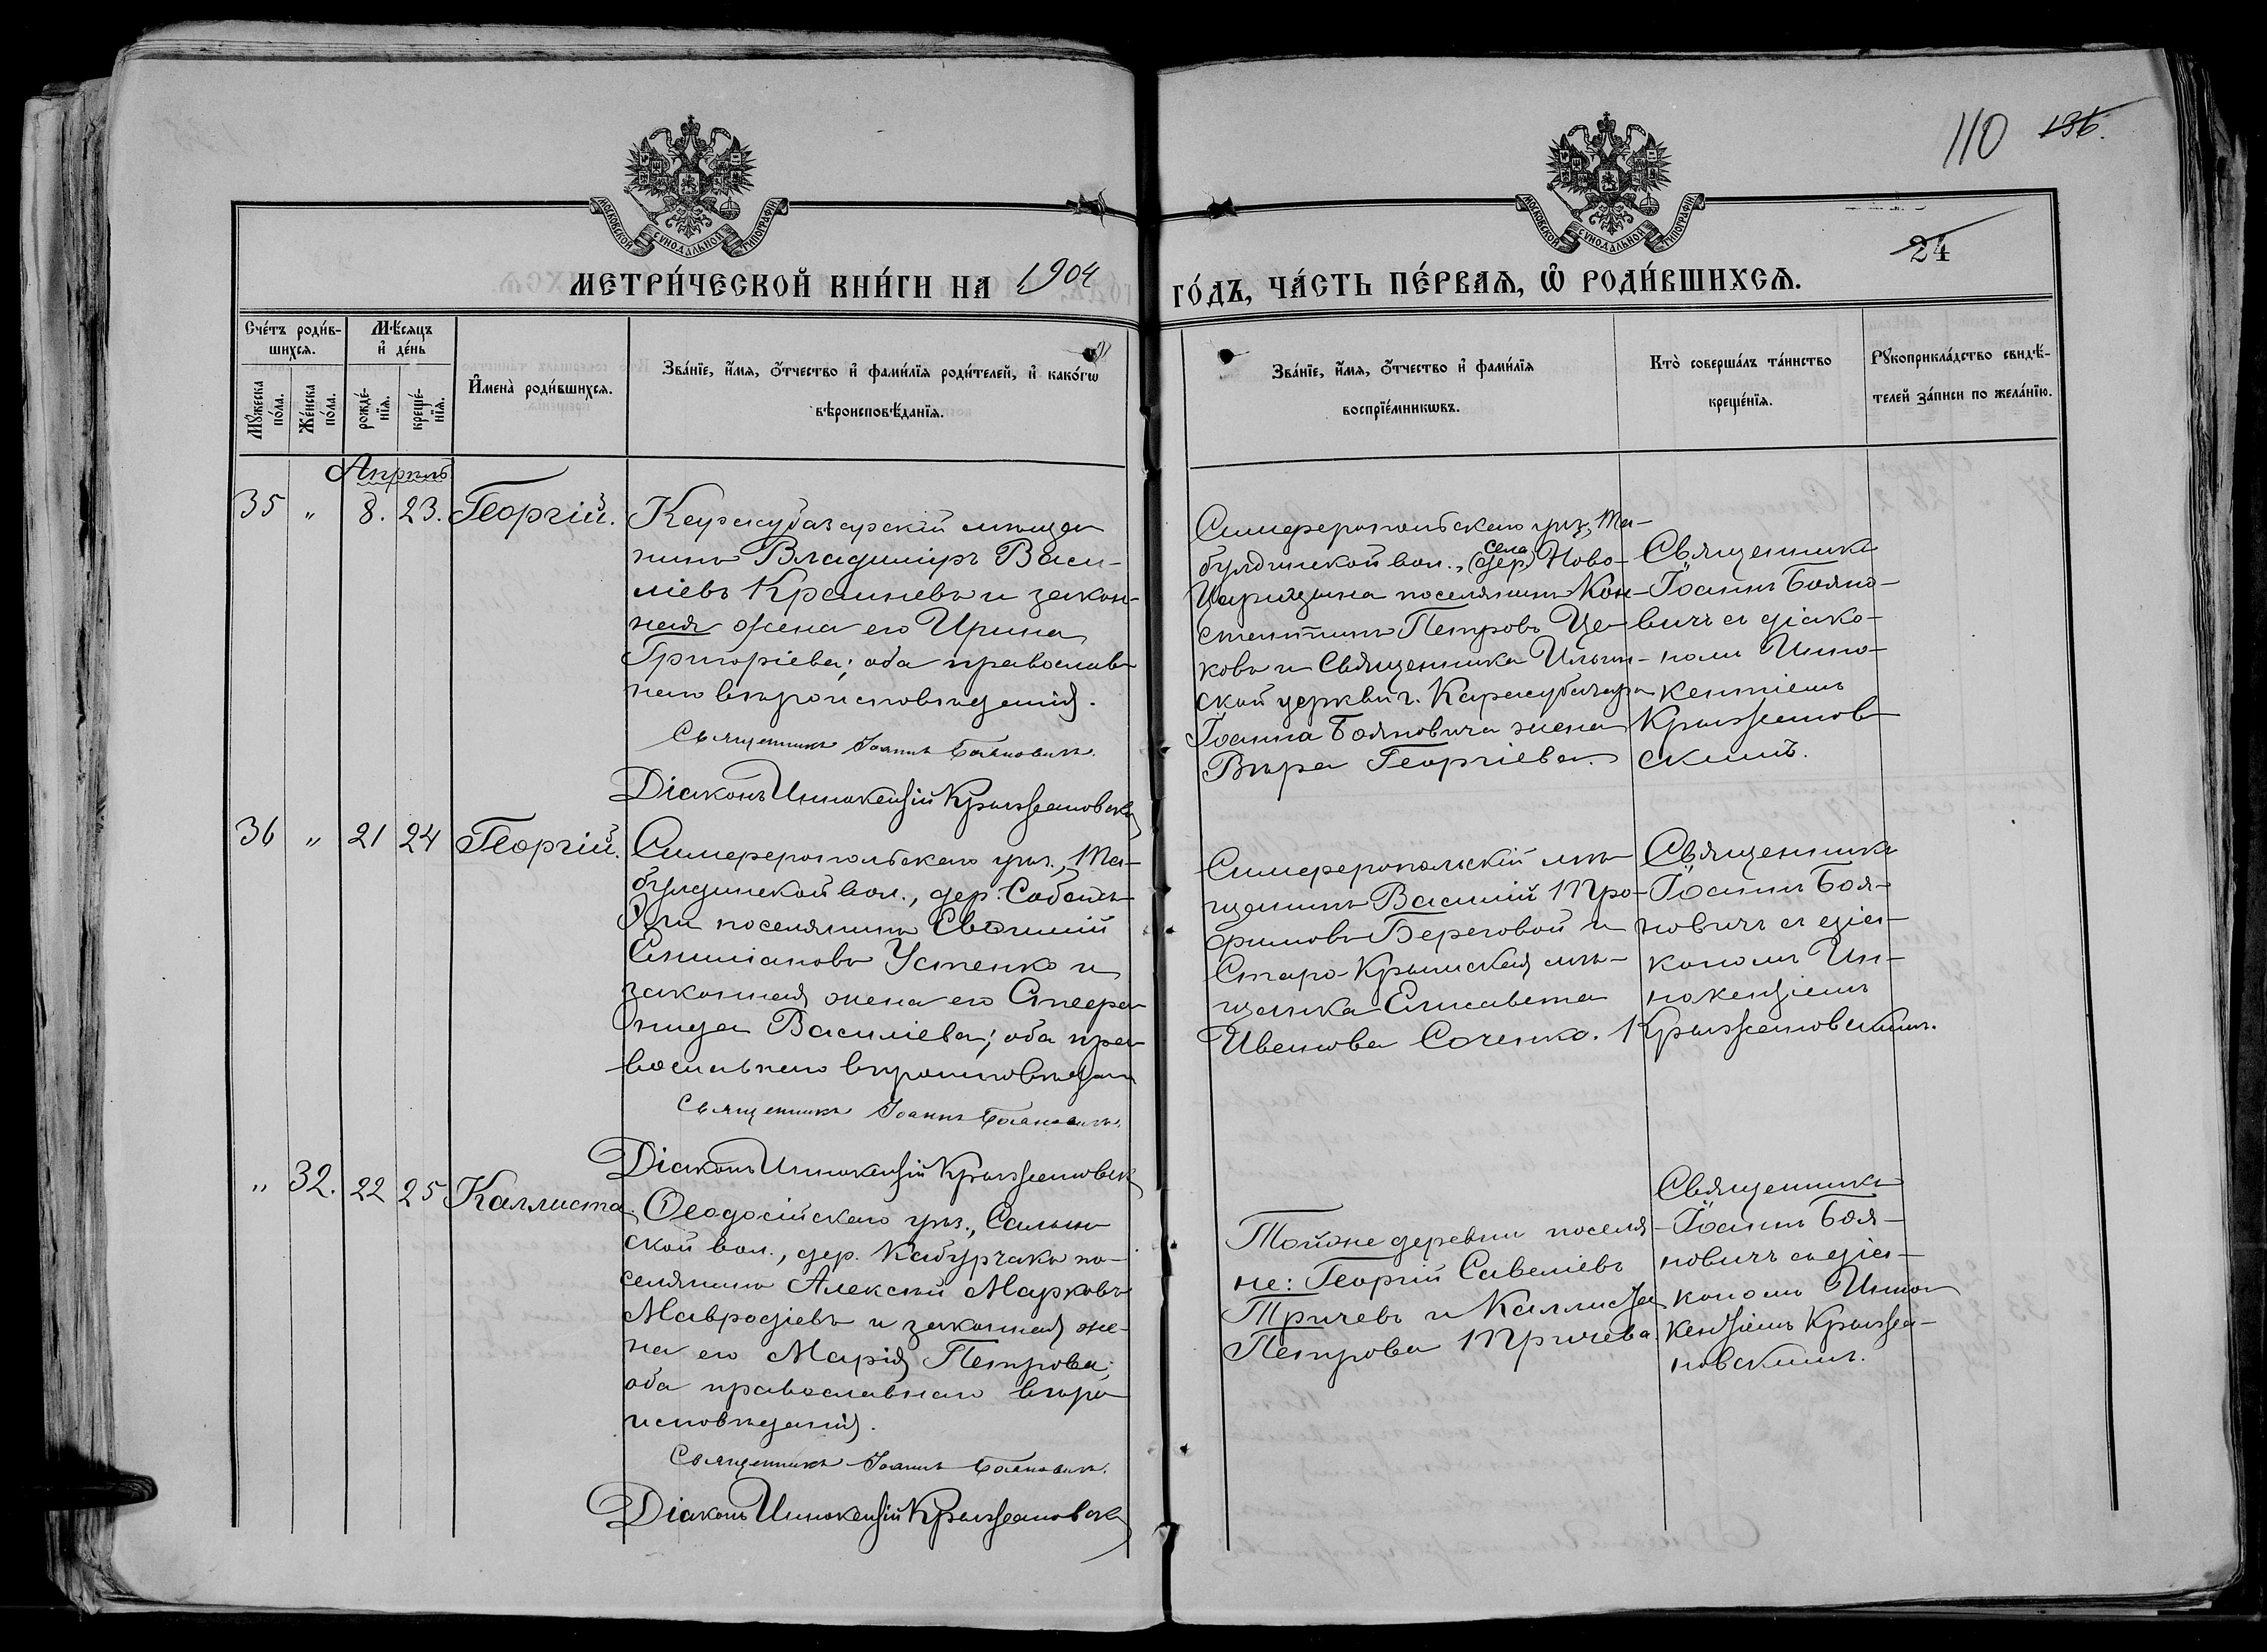 110 136.
24
МОСКОВСКОЙ СѴНОДАЛЬНОЙ ТИПОГРАФІИ
МОСКОВСКОЙ СѴНОДАЛЬНОЙ ТИПОГРАФІИ
МЕТРИ́ЧЕСКОЙ КНИ́ГИ НА 1904
ГО́ДЪ, ЧА́СТЬ ПЕ́РВАѦ, Ѽ РОДИ́ВШИХСѦ.
Сче́тъ роди́в-
шихсѧ.
Мѣ́сѧцъ
и҆ де́нь
Мꙋ́жеска
по́ла.
Же́нска
по́ла.
рожде́-
нїѧ.
креще́-
нїѧ.
И҆мена̀ роди́вшихсѧ.
Зва́нїе, и҆́мѧ, ѻ҆́тчество и҆ фами́лїѧ роди́телей, и҆ како́гѡ
вѣроисповѣ́данїѧ.
Зва́нїе, и҆́мѧ, ѻ҆́тчество и҆ фами́лїѧ
воспрїе́мникѡвъ.
Кто̀ соверша́лъ та́инство
креще́нїѧ.
Рꙋкоприкла́дство свидѣ́-
телей за́писи по жела́нїю.
Апрѣль
35 " 8. 23. Георгій.
Карасубазарскій мѣща-
нинъ Владиміръ Васи-
ліевъ Крайневъ и закон-
ная жена его Ирина
Григоріева; оба православ-
наго вѣроисповѣданія.
Священникъ Іоаннъ Бояновичъ.
Діаконъ Иннокентій Крыжановскій
Симферопольскаго уѣз., Та-
булдинской вол., (дер.) села Ново-
Царицына поселянинъ Кон-
стантинъ Петровъ Це-
ковъ и Священника Ильин-
ской церкви г. Карасубазара
Іоанна Бояновича жена
Вѣра Георгіева.
Священникъ
Іоаннъ Бояно-
вичъ съ діако-
номъ Инно-
кентіемъ
Крыжанов-
скимъ.
36 " 21 24 Георгій.
Симферопольскаго уѣз., Та-
булдинской вол., дер.
поселянинъ
Емиліановъ Устенко и
законная жена его Стефа-
нида Василіева; оба пра-
вославнаго вѣроисповѣдан.
Священникъ Іоаннъ Бояновичъ.
Діаконъ Иннокентій Крыжановскій
Симферопольскій мѣ-
щанинъ Василій Тро-
фимовъ Береговой и
Старо-Крымская мѣ-
щанка Елисавета
Иванова Соченко.
Священникъ
Іоаннъ Боя-
новичъ съ діа-
кономъ Ин-
нокентіемъ
Крыжановскимъ.
" 32. 22 25 Каллиста.
Ѳеодосійскаго уѣз., Салын-
ской вол., дер. Кабурчакъ по-
селянинъ Алексій Марковъ
Мавродіевъ и законная же-
на его Марія Петрова;
оба православнаго вѣро-
исповѣданія.
Священникъ Іоаннъ Бояновичъ.
Діаконъ Иннокентій Крыжановскій
Той же деревни поселя-
не: Георгій Савеліевъ
Тричевъ и Каллиста
Петрова Тричева.
Священникъ
Іоаннъ Боя-
новичъ съ діа-
кономъ Инно-
кентіемъ Крыжа-
новскимъ.